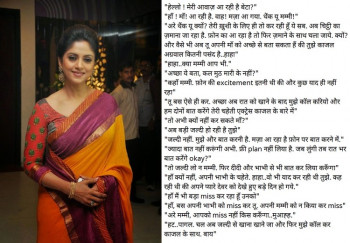 "हेल्लो ! मेरी आवाज़ आ रही है बेटा?"
"हाँ ! माँ! आ रही है. वाह! मज़ा आ गया. थैंक यू मम्मी!"
"अरे थैंक यू क्यों? तेरी ख़ुशी के लिए ही तो कर रही हूँ ये सब. अब चिट्ठी का
ज़माना जा रहा है. फ़ोन का आ रहा है तो फिर ज़माने के साथ चला जाये. क्यों?
और वैसे भी अब तू अपनी माँ को अच्छे से बता सकता हैं की तुझे काजल
अग्रवाल कितनी पसंद है..हाहा"
"हाहा..क्या मम्मी आप भी."
"अच्छा ये बता, कल मुठ मारी के नहीं?"
"कहाँ मम्मी..फ़ोन की excitement इतनी थी की और कुछ याद ही नहीं
रहा"
"तू बस ऐसे ही कर. अच्छा अब रात को खाने के बाद मुझे कॉल करियो और
हम दोनों बात करेंगे तेरी चहेती एक्ट्रेस काजल के बारे में"
"तो अभी क्यों नहीं कर सकते माँ?"
"अब बड़ी जल्दी हो रही है तुझे"
"जल्दी नहीं. मुझे और बात करनी है. मज़ा आ रहा है फ़ोन पर बात करने में."
"ज्यादा बात नहीं करूंगी अभी. फ्री plan नहीं लिया है. जब लुंगी तब रात भर
बात करेंगे okay?"
"तो जल्दी लो न मम्मी. फिर दीदी और भाभी से भी बात कर लिया करूँगा"
"हाँ क्यों नहीं, अपनी भाभी के चहेते. हाहा..वो भी याद कर रही थी तुझे. कह
रही थी की अपने प्यारे देवर को देखे हुए बड़े दिन हो गये."
"हाँ मैं भी बड़ा miss कर रहा हूँ उनको"
"हाँ, बस अपनी भाभी को miss कर तू. अपनी मम्मी को न किया कर miss"
"अरे मम्मी, आपको miss नहीं किस करूँगा..मुआह्ह."
"हट..पागल. चल अब जल्दी से खाना खाने जा और फिर मुझे कॉल कर
काजल के साथ. बाय"